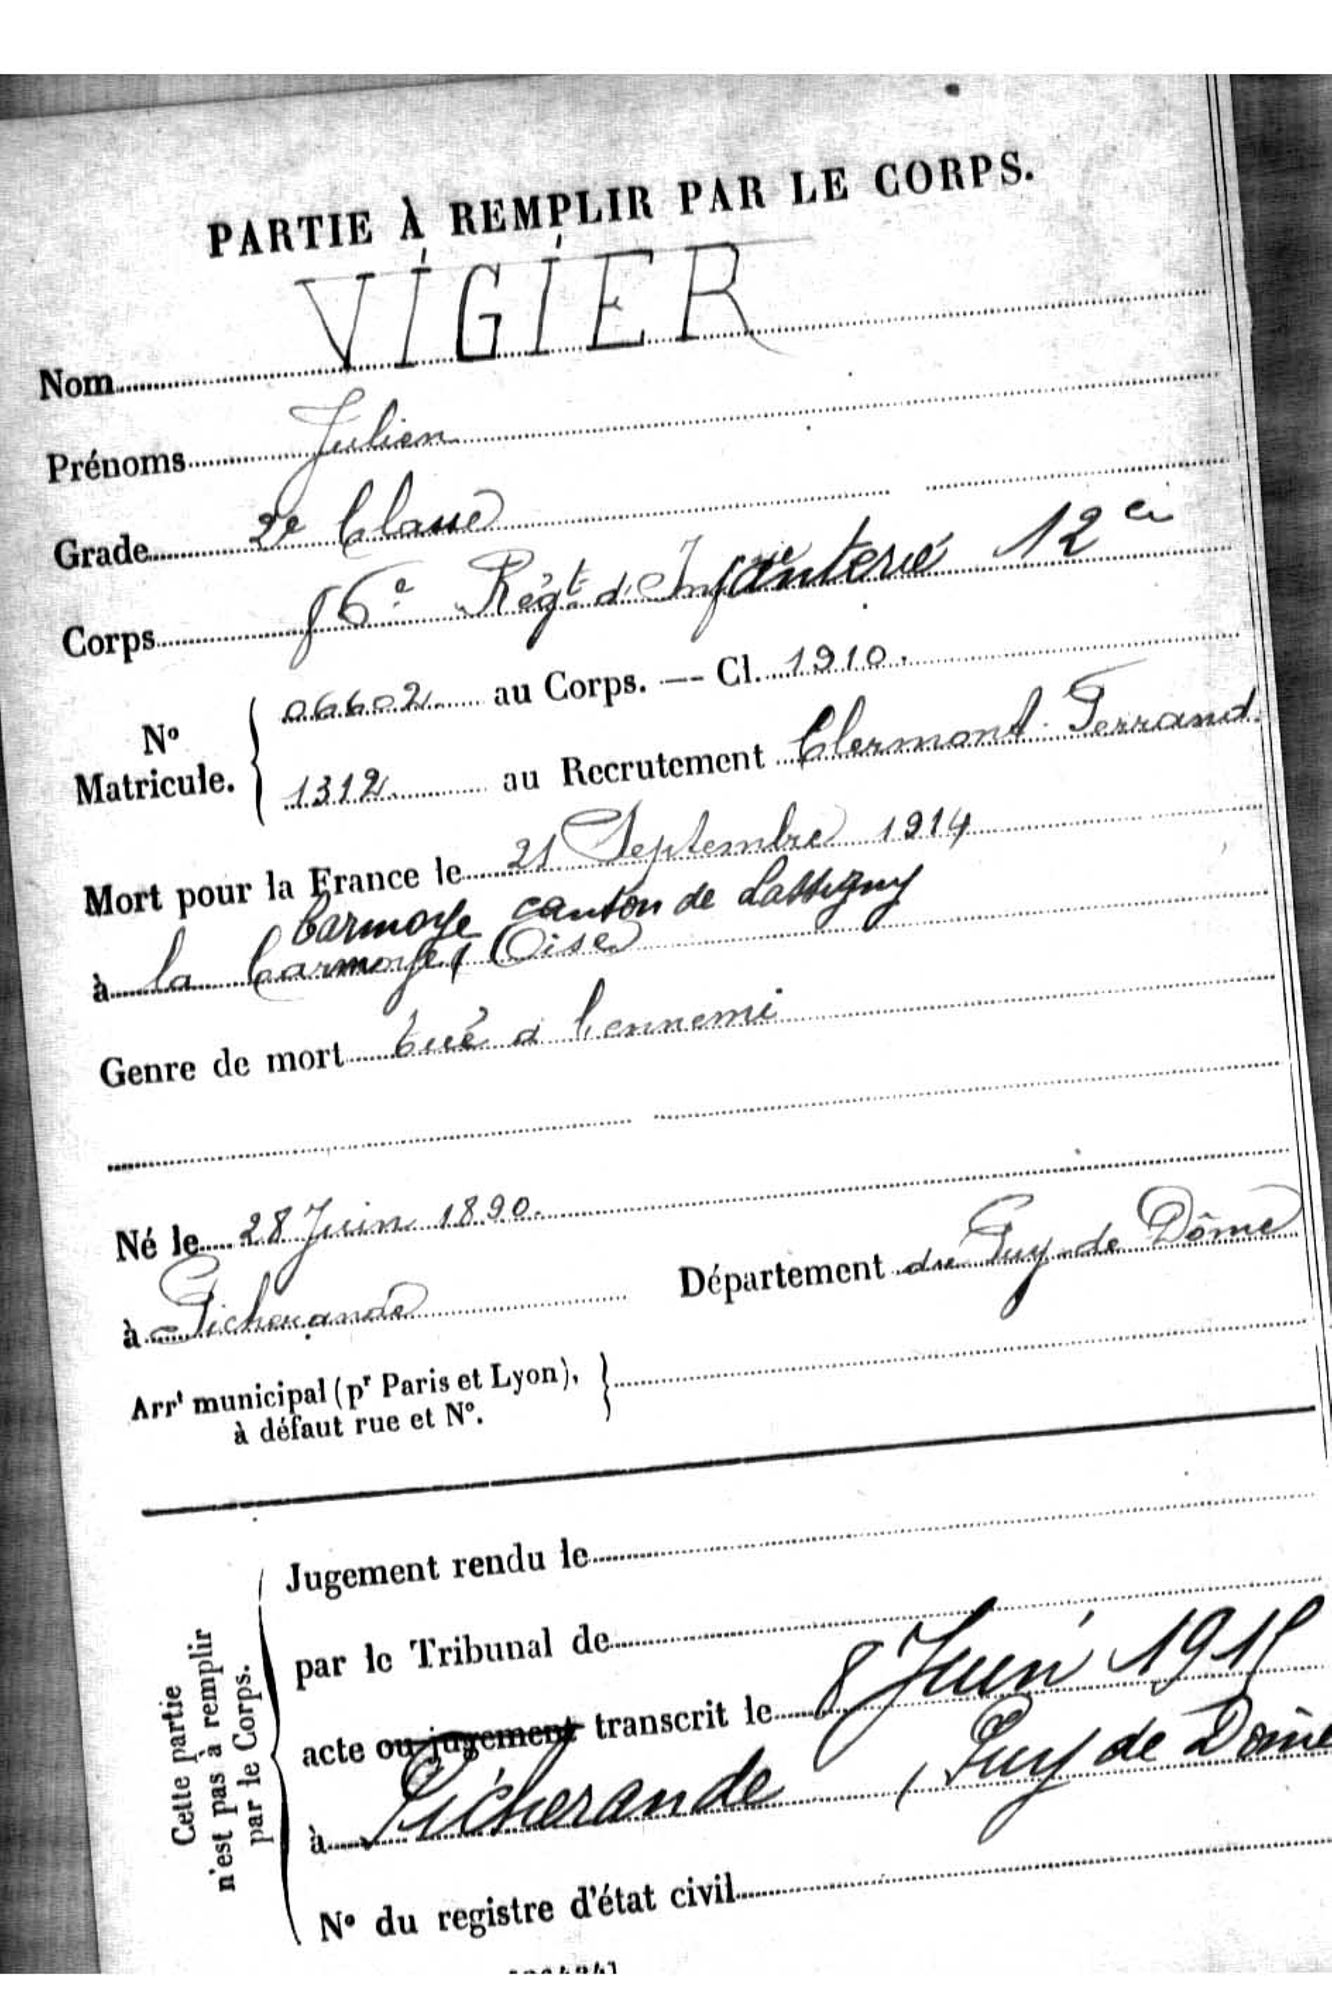 PARTIE À REMPLIR PAR LE CORPS.
Nom VIGIER
Prénoms Julien
Grade 2e Classe
Corps 86e Régt d'Infanterie 12 Cie
No Matricule. { 06602 au Corps. — Cl. 1910.
1312 au Recrutement Clermont-Ferrand
Mort pour la France le 21 Septembre 1914
Carmoye canton de Lassigny
à la Carmoye, Oise
Genre de mort tué a l'ennemi
Né le 28 Juin 1890.
à Picherande Département du Puy-de-Dôme
Arrt municipal (pr Paris et Lyon), }
à défaut rue et No.
Cette partie
n'est pas à remplir
par le Corps.
Jugement rendu le
par le Tribunal de
acte ou jugement transcrit le 8 Juin 1915
à Picherande, Puy de Dôme
No du registre d'état civil